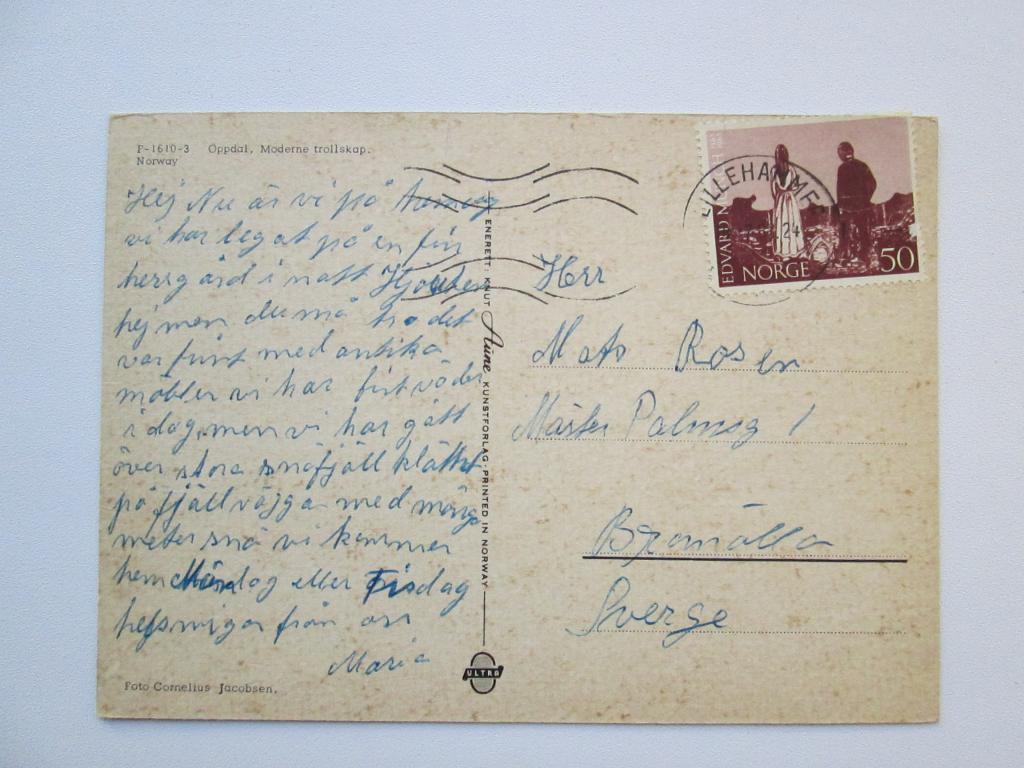 F-1610-3 Oppdal, Moderne trollskap.
Norway
Hej Nu är vi på
vi har legat på en fin
herrgård i natt
hej men du må tro det
var fint med antika
möbler vi har fint väder
i dag, men vi har gått
över stora snöfjäll klättrat
på fjällväggar med många
meter snö vi kommer
hem Måndag eller Tisdag
helsnigar från oss
Maria
Foto Cornelius Jacobsen.
ENERETT: KNUT Aune KUNSTFORLAG - PRINTED IN NORWAY
ULTRA
LILLEHAMMER
24
EDVARD MUNCH
NORGE 50
Herr
Mats Rosen
Mäster Palmsg 1
Bromölla
Sverge